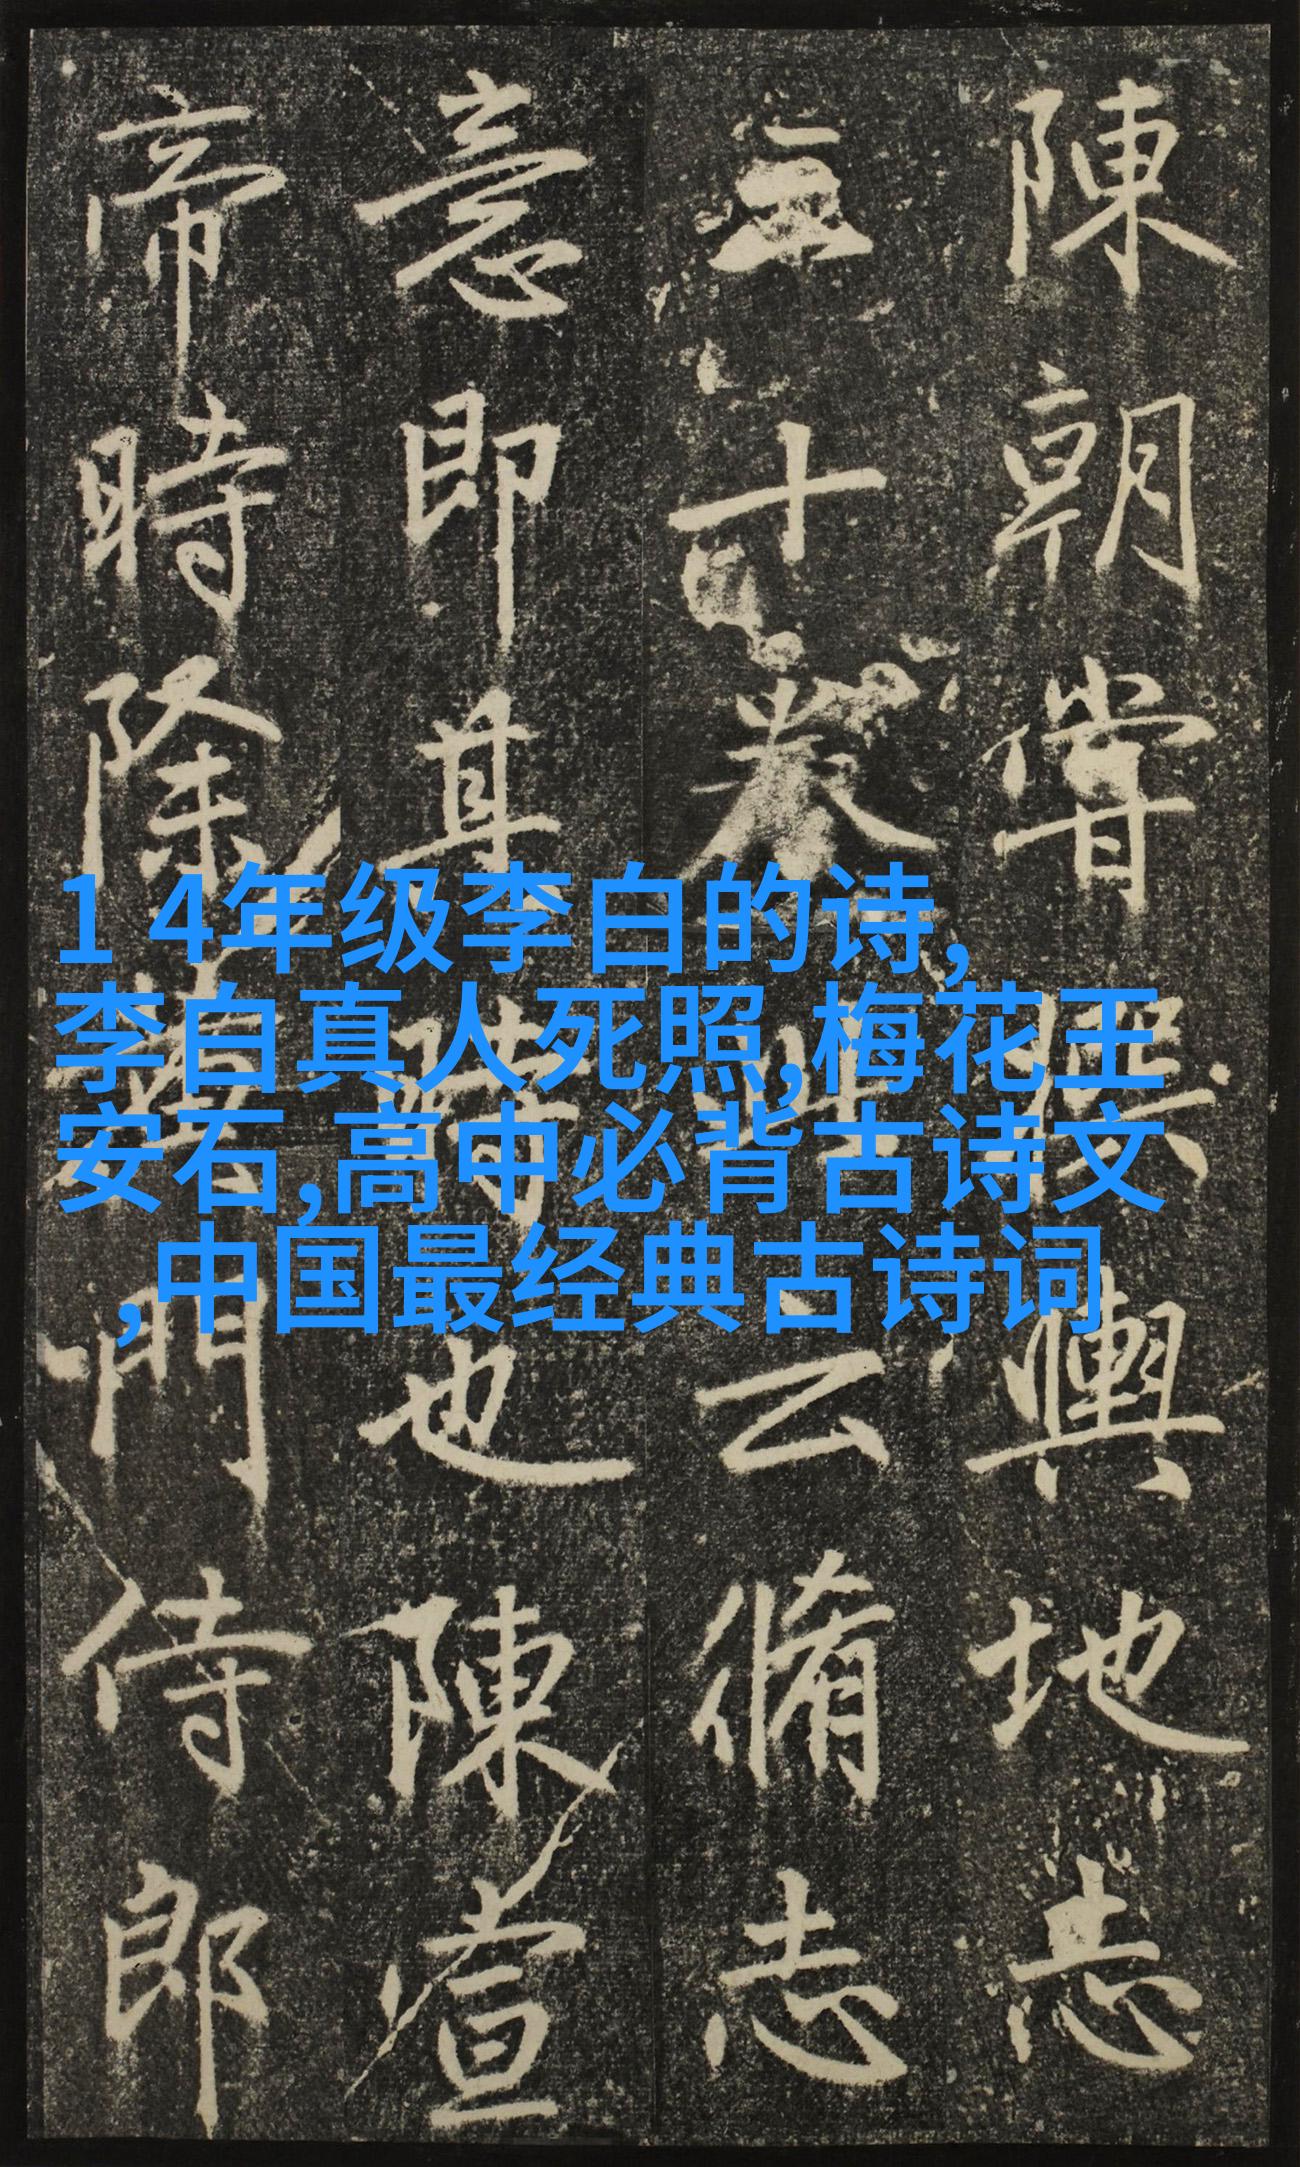 陳朝嘗撰輿地志
三十卷
云脩志
意即其時也陳宣
帝時除黃門侍郎
1 4年级李白的诗,
李白真人死照,梅花王
安石,高中必背古诗文
,中国最经典古诗词